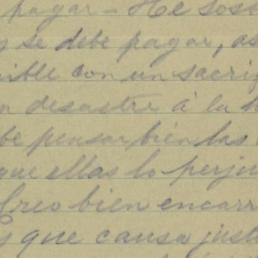 pagar - He sos
se debe pagar, as
ible con un sacri
desastre á la
be pensar bien las
que ellas lo perju
Creo bien encarr
que causa just